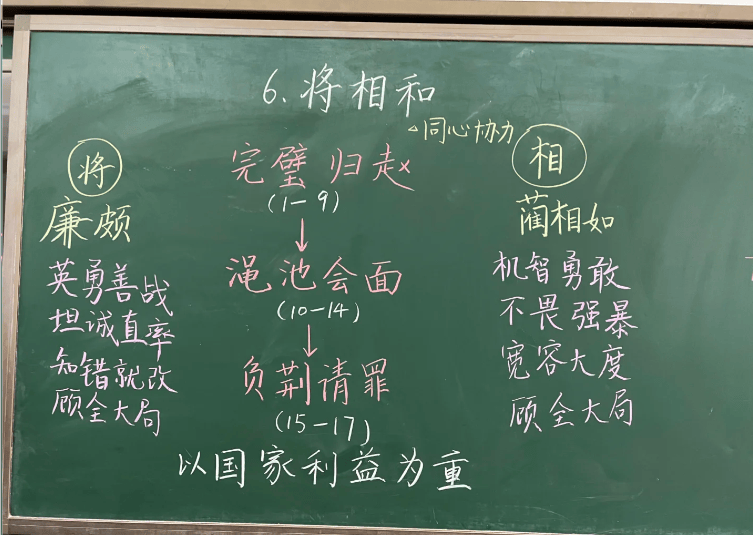 6.将相和
△同心协力
将
廉颇
英勇善战
坦诚直率
知错就改
顾全大局
完璧归赵
(1-9)
↓
渑池会面
(10-14)
↓
负荆请罪
(15-17)
相
蔺相如
机智勇敢
不畏强暴
宽容大度
顾全大局
以国家利益为重